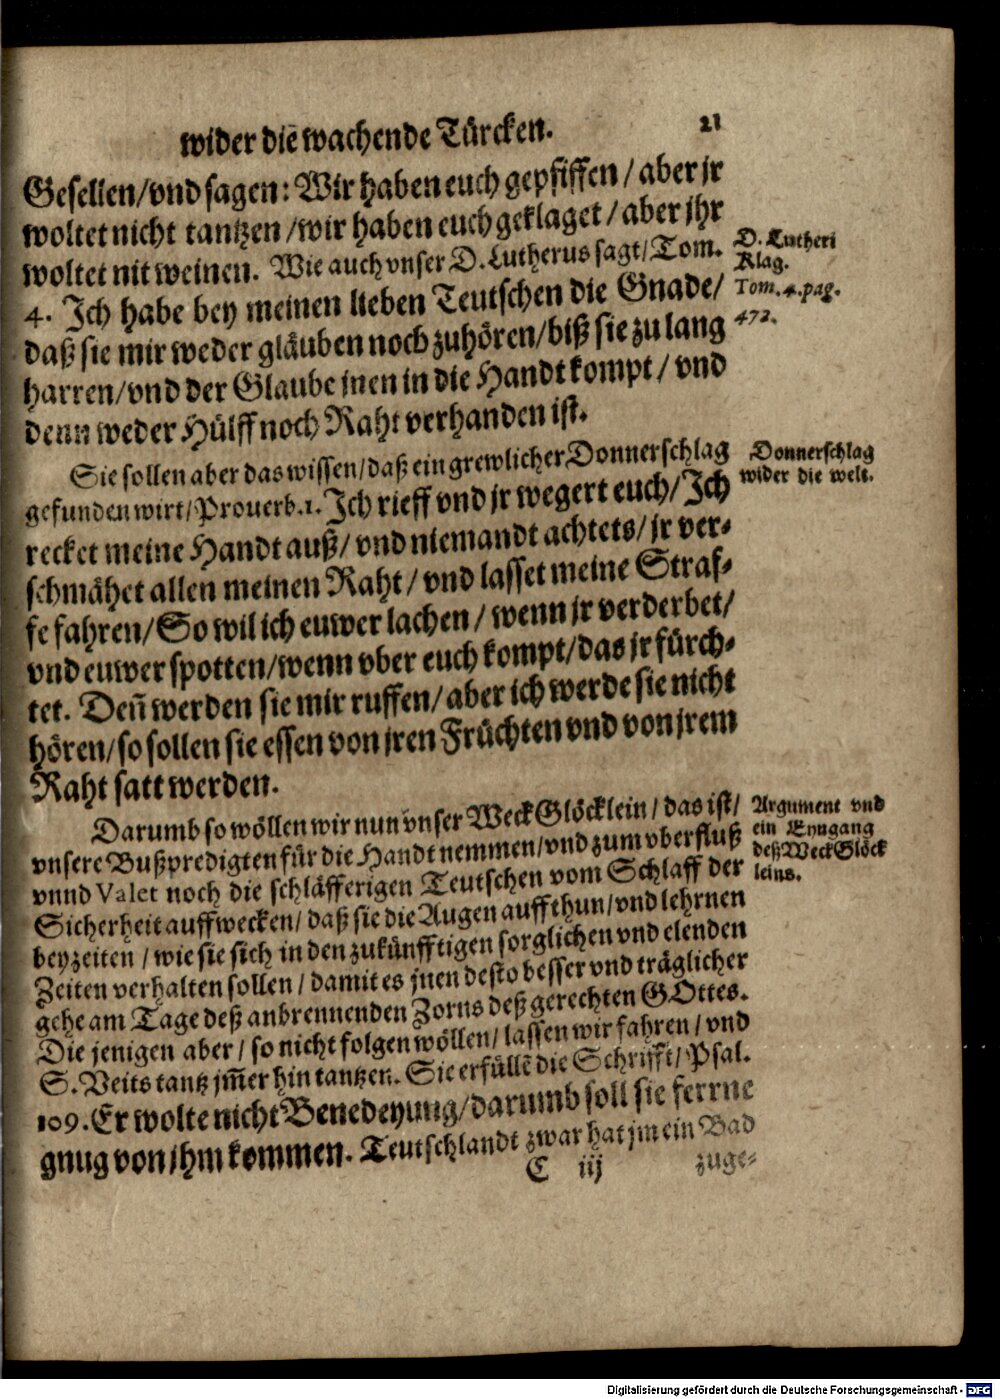 wider die wachende Türcken. 21
Gesellen/vnd sagen: Wir haben euch gepfiffen / aber jr
woltet nicht tantzen /wir haben euch geklaget / aber jhr
woltet nit weinen. Wie auch vnser D. Lutherus sagt/ Tom.
4. Ich habe bey meinen lieben Teutschen die Gnade/
daß sie mir weder gläuben noch zuhören/biß sie zu lang
harren/vnd der Glaube jnen in die Handt kompt / vnd
denn weder Hülff noch Raht verhanden ist.
D. Lutheri
Klag.
Tom. 4. pag.
472.
Sie sollen aber das wissen/daß ein grewlicher Donnerschlag
gefunden wirt/Prouerb. 1. Ich rieff vnd jr wegert euch/Ich
recket meine Handt auß/ vnd niemandt achtets/ jr ver-
schmähet allen meinen Raht / vnd lasset meine Straf-
fe fahren/So wil ich euwer lachen / wenn jr verderbet/
vnd euwer spotten/wenn vber euch kompt/das jr fürch-
tet. Deñ werden sie mir ruffen/ aber ich werde sie nicht
hören/so sollen sie essen von jren Früchten vnd von jrem
Raht satt werden.
Donnerschlag
wider die welt.
Darumb so wöllen wir nun vnser WeckGlöcklein / das ist/
vnsere Bußpredigten für die Handt nemmen/vnd zum vberfluß
vnnd Valet noch die schläfferigen Teutschen vom Schlaff der
Sicherheit auffwecken/ daß sie die Augen auffthun/vnd lehrnen
beyzeiten / wie sie sich in den zukünfftigen sorglichen vnd elenden
Zeiten verhalten sollen / damit es jnen desto besser vnd träglicher
gehe am Tage deß anbrennenden Zorns deß gerechten GOttes.
Die jenigen aber / so nicht folgen wöllen/ lassen wir fahren / vnd
S. Veits tantz jm̃er hin tantzen. Sie erfüllẽ die Schrifft/ Psal.
109. Er wolte nicht Benedeyung/darumb soll sie ferrne
gnug von jhm kommen. Teutschlandt zwar hat jm ein Bad
Argument vnd
ein Eyngang
deß WeckGlöck
leins.
C iij zuge-
Digitalisierung gefördert durch die Deutsche Forschungsgemeinschaft - DFG